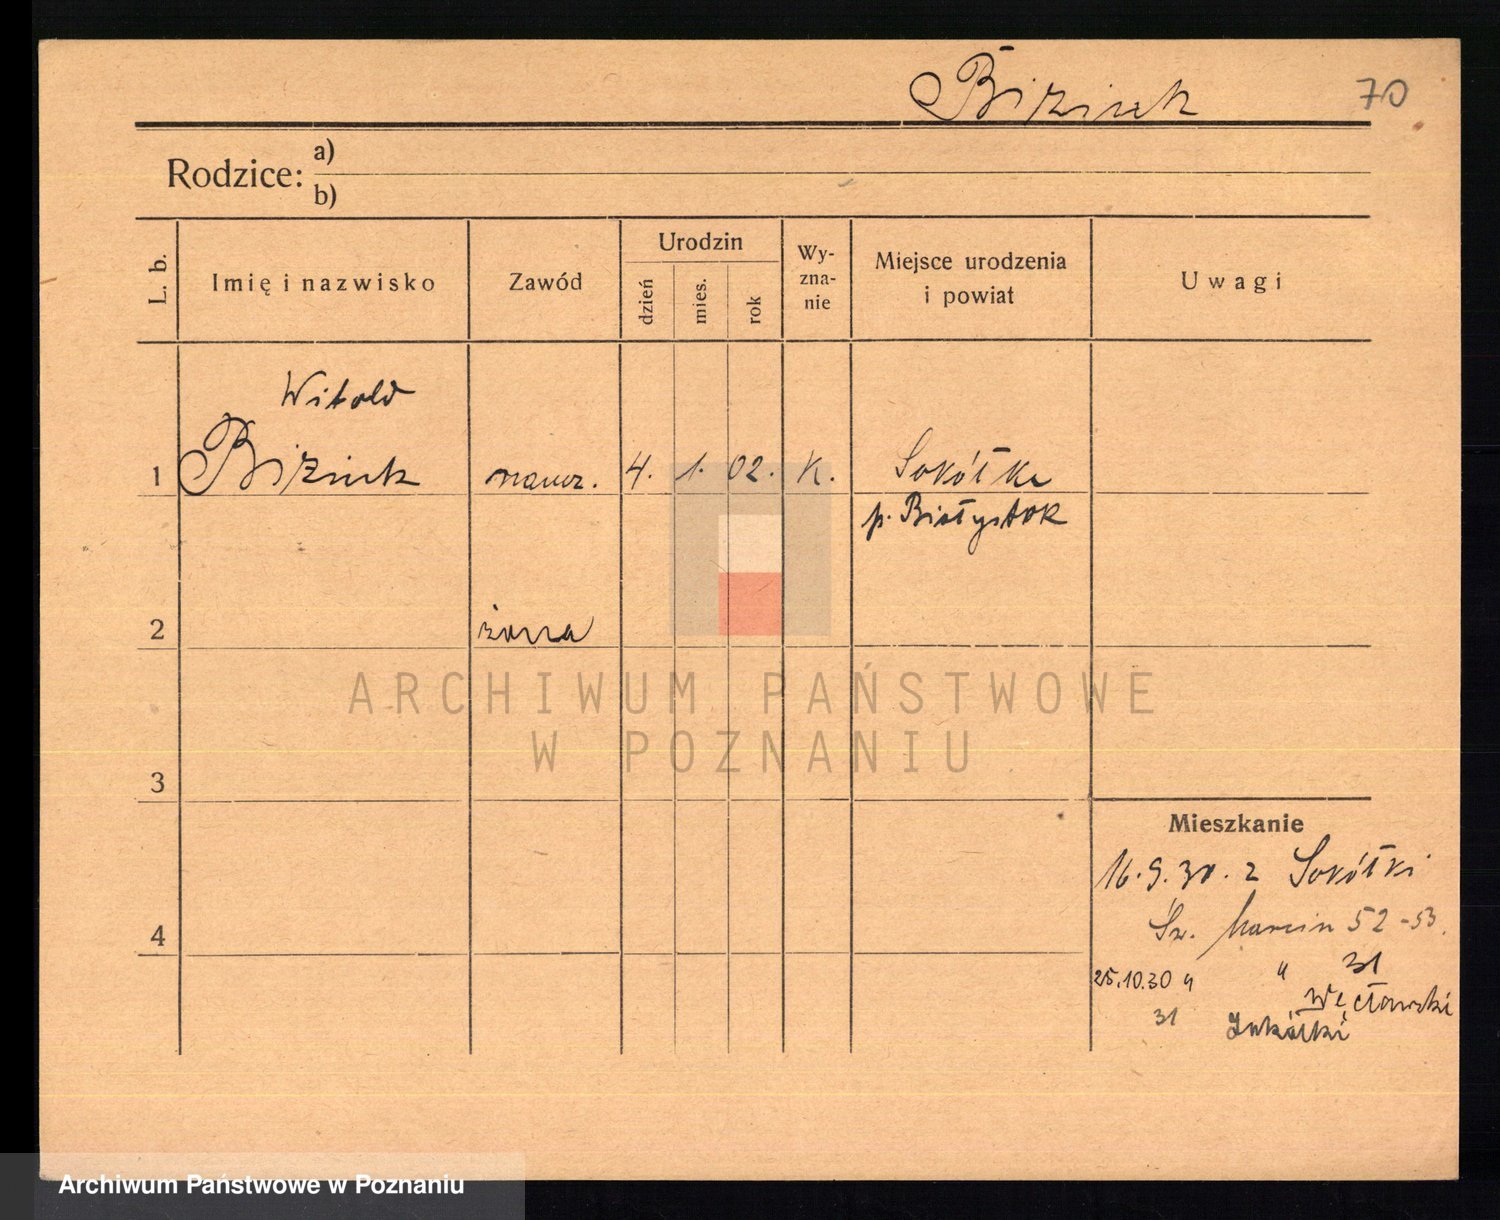 Biziuk 70
Rodzice: a)
b)
L. b. Imię i nazwisko Zawód Urodzin dzień mies. rok Wy-zna-nie Miejsce urodzenia i powiat Uwagi
Witold
1 Biziuk naucz. 4. 1. 02. K. Sokółka
p. Białystok
2 żona
ARCHIWUM PAŃSTWOWE
W POZNANIU
3
Mieszkanie
16.9.30. z Sokółki
4 Św. Marcin 52-53.
25.10.30 " " 31
Węcławski
31
Archiwum Państwowe w Poznaniu